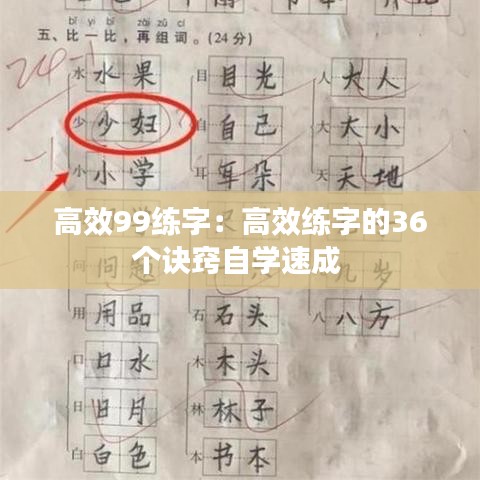 bǐ yì bǐ zài zǔ cí
五、比一比，再组词。(24分)
24-1
水 水果 目 目光 人 大人
少 少妇 自 自己 大 大小
-1
小 小学 耳 耳朵 天 天地
高效99练字：高效练字的36
个诀窍自学速成
问 问题 几岁
用 用品 石 石头 八 八方
口 口水 木 木头
日 日月 林 林子
白 白色 本 书本